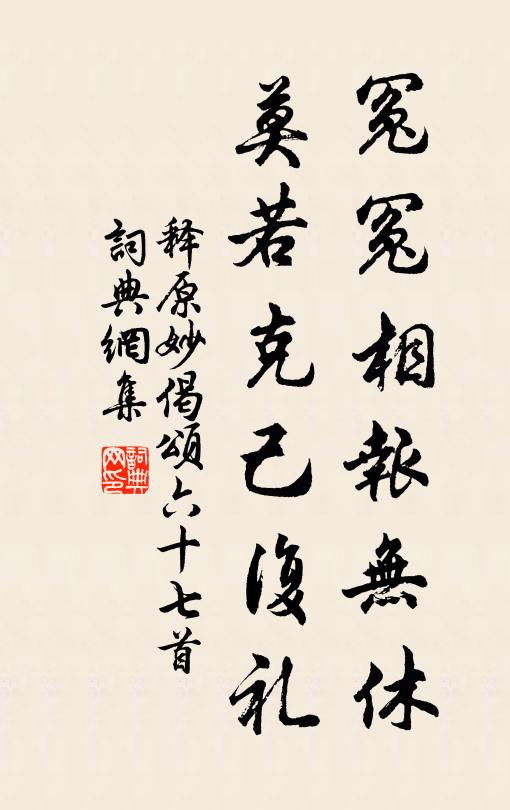 冤冤相報無休
莫若克己復礼
释原妙偈頌六十七首
詞典網集
詞典网印